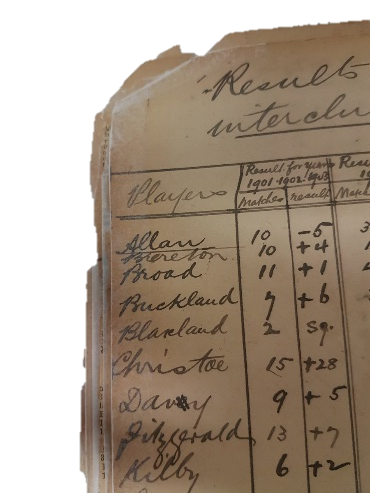 Results
interclu
Players Result for years Resu
1901-1902-1903 19
Matches result Match
Allan 10 -5 3
Brereton 10 +4
Broad 11 +1
Buckland 7 +6
Blaxland 2 Sq.
Christoe 15 +28
Davy 9 +5
Fitzgerald 13 +7
Kilby 6 +2